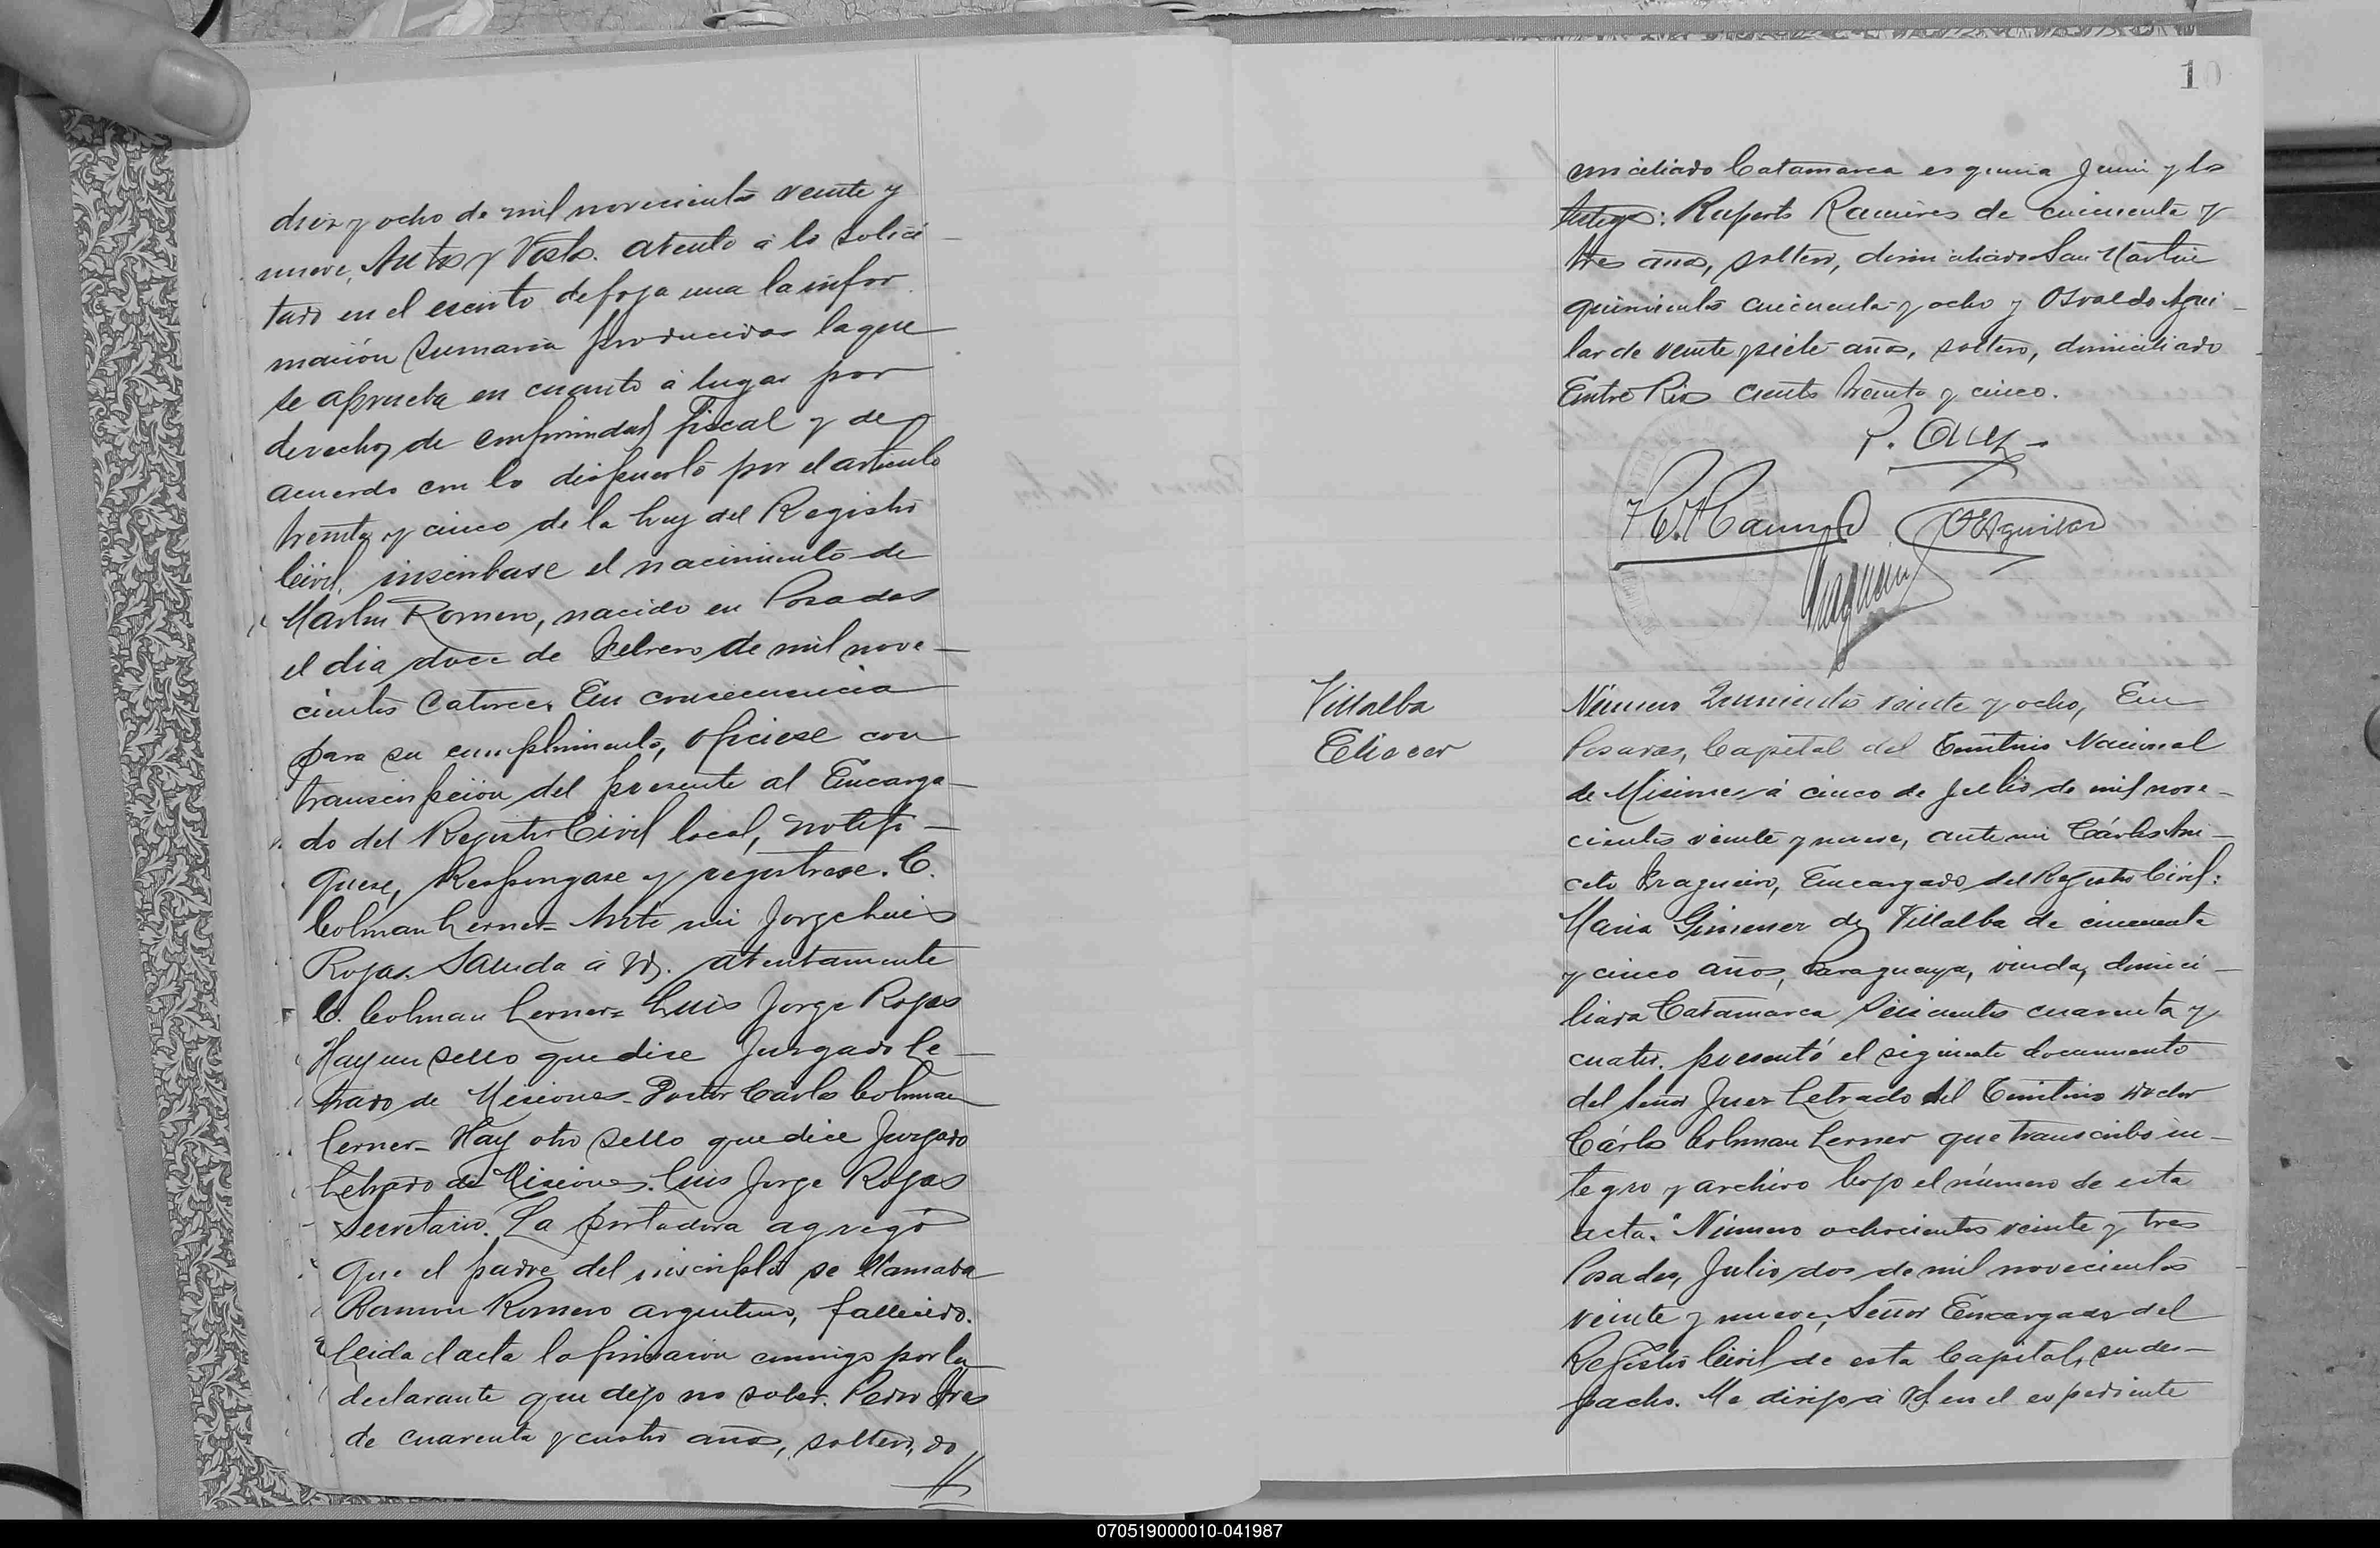 diez y ocho de mil novecientos veinte y
nueve, Autos y Vistos. atento á lo solici-
tado en el escrito de foja una la infor
mación sumaria producida laque
se aprueba en cuanto á lugar por
derecho, de conformidad Fiscal y de
acuerdo con lo dispuesto por el artículo
treinta y cinco de la Ley del Registro
Civil, inscribase el nacimiento de
Martin Romero, nacido en Posadas
el dia doce de Febrero de mil nove-
cientos catorce. En consecuencia
para su cumplimiento, ofíciese con
transcripción del presente al Encarga-
do del Registro Civil local, notifi-
quese, Repóngase y regístrese. C.
Colman Lerner= Ante mi Jorge Luis
Rojas. Saluda á Vd. atentamente
C. Colman Lerner= Luis Jorge Rojas
Hay un sello que dice Juzgado Le-
trado de Misiones. Doctor Carlos Colman
Lerner= Hay otro sello que dice Juzgado
Letrado de Misiones. Luis Jorge Rojas
Secretario. La portadora agregó
que el padre del inscripto se llamaba
Ramon Romero argentino, fallecido.
Leida el acta la firmaron conmigo por la
declarante que dijo no saber. Pedro
de cuarenta y cuatro años, soltero, do
10
miciliado Catamarca esquina Junin y los
testigos: Ruperto Ramires de cincuenta y
tres años, soltero, domiciliado San Martin
quinientos cincuenta y ocho y Osvaldo Agui-
lar de veinte y siete años, soltero, domiciliado
Entre Rios ciento treinta y cinco.
OAguilar
Villalba
Eliecer
Número Quinientos veinte y ocho, En
Posadas, Capital del Territorio Nacional
de Misiones á cinco de Julio de mil nove-
cientos veinte y nueve, ante mi Cárlos Ani-
ceto Fragueiro, Encargado del Registro Civil:
Maria Gimenez de Villalba de cincuenta
y cinco años, Paraguaya, viuda, domici-
liada Catamarca seiscientos cuarenta y
cuatro. presentó el siguiente documento
del Señor Juez Letrado del Territorio Doctor
Cárlos Colman Lerner que transcribo in-
tegro y archivo bajo el número de esta
acta." Número ochocientos veinte y tres
Posadas, Julio dos de mil novecientos
veinte y nueve, Señor Encargado del
Registro Civil de esta Capital, su des-
pacho. Me dirijo á Vd. en el expediente
070519000010-041987